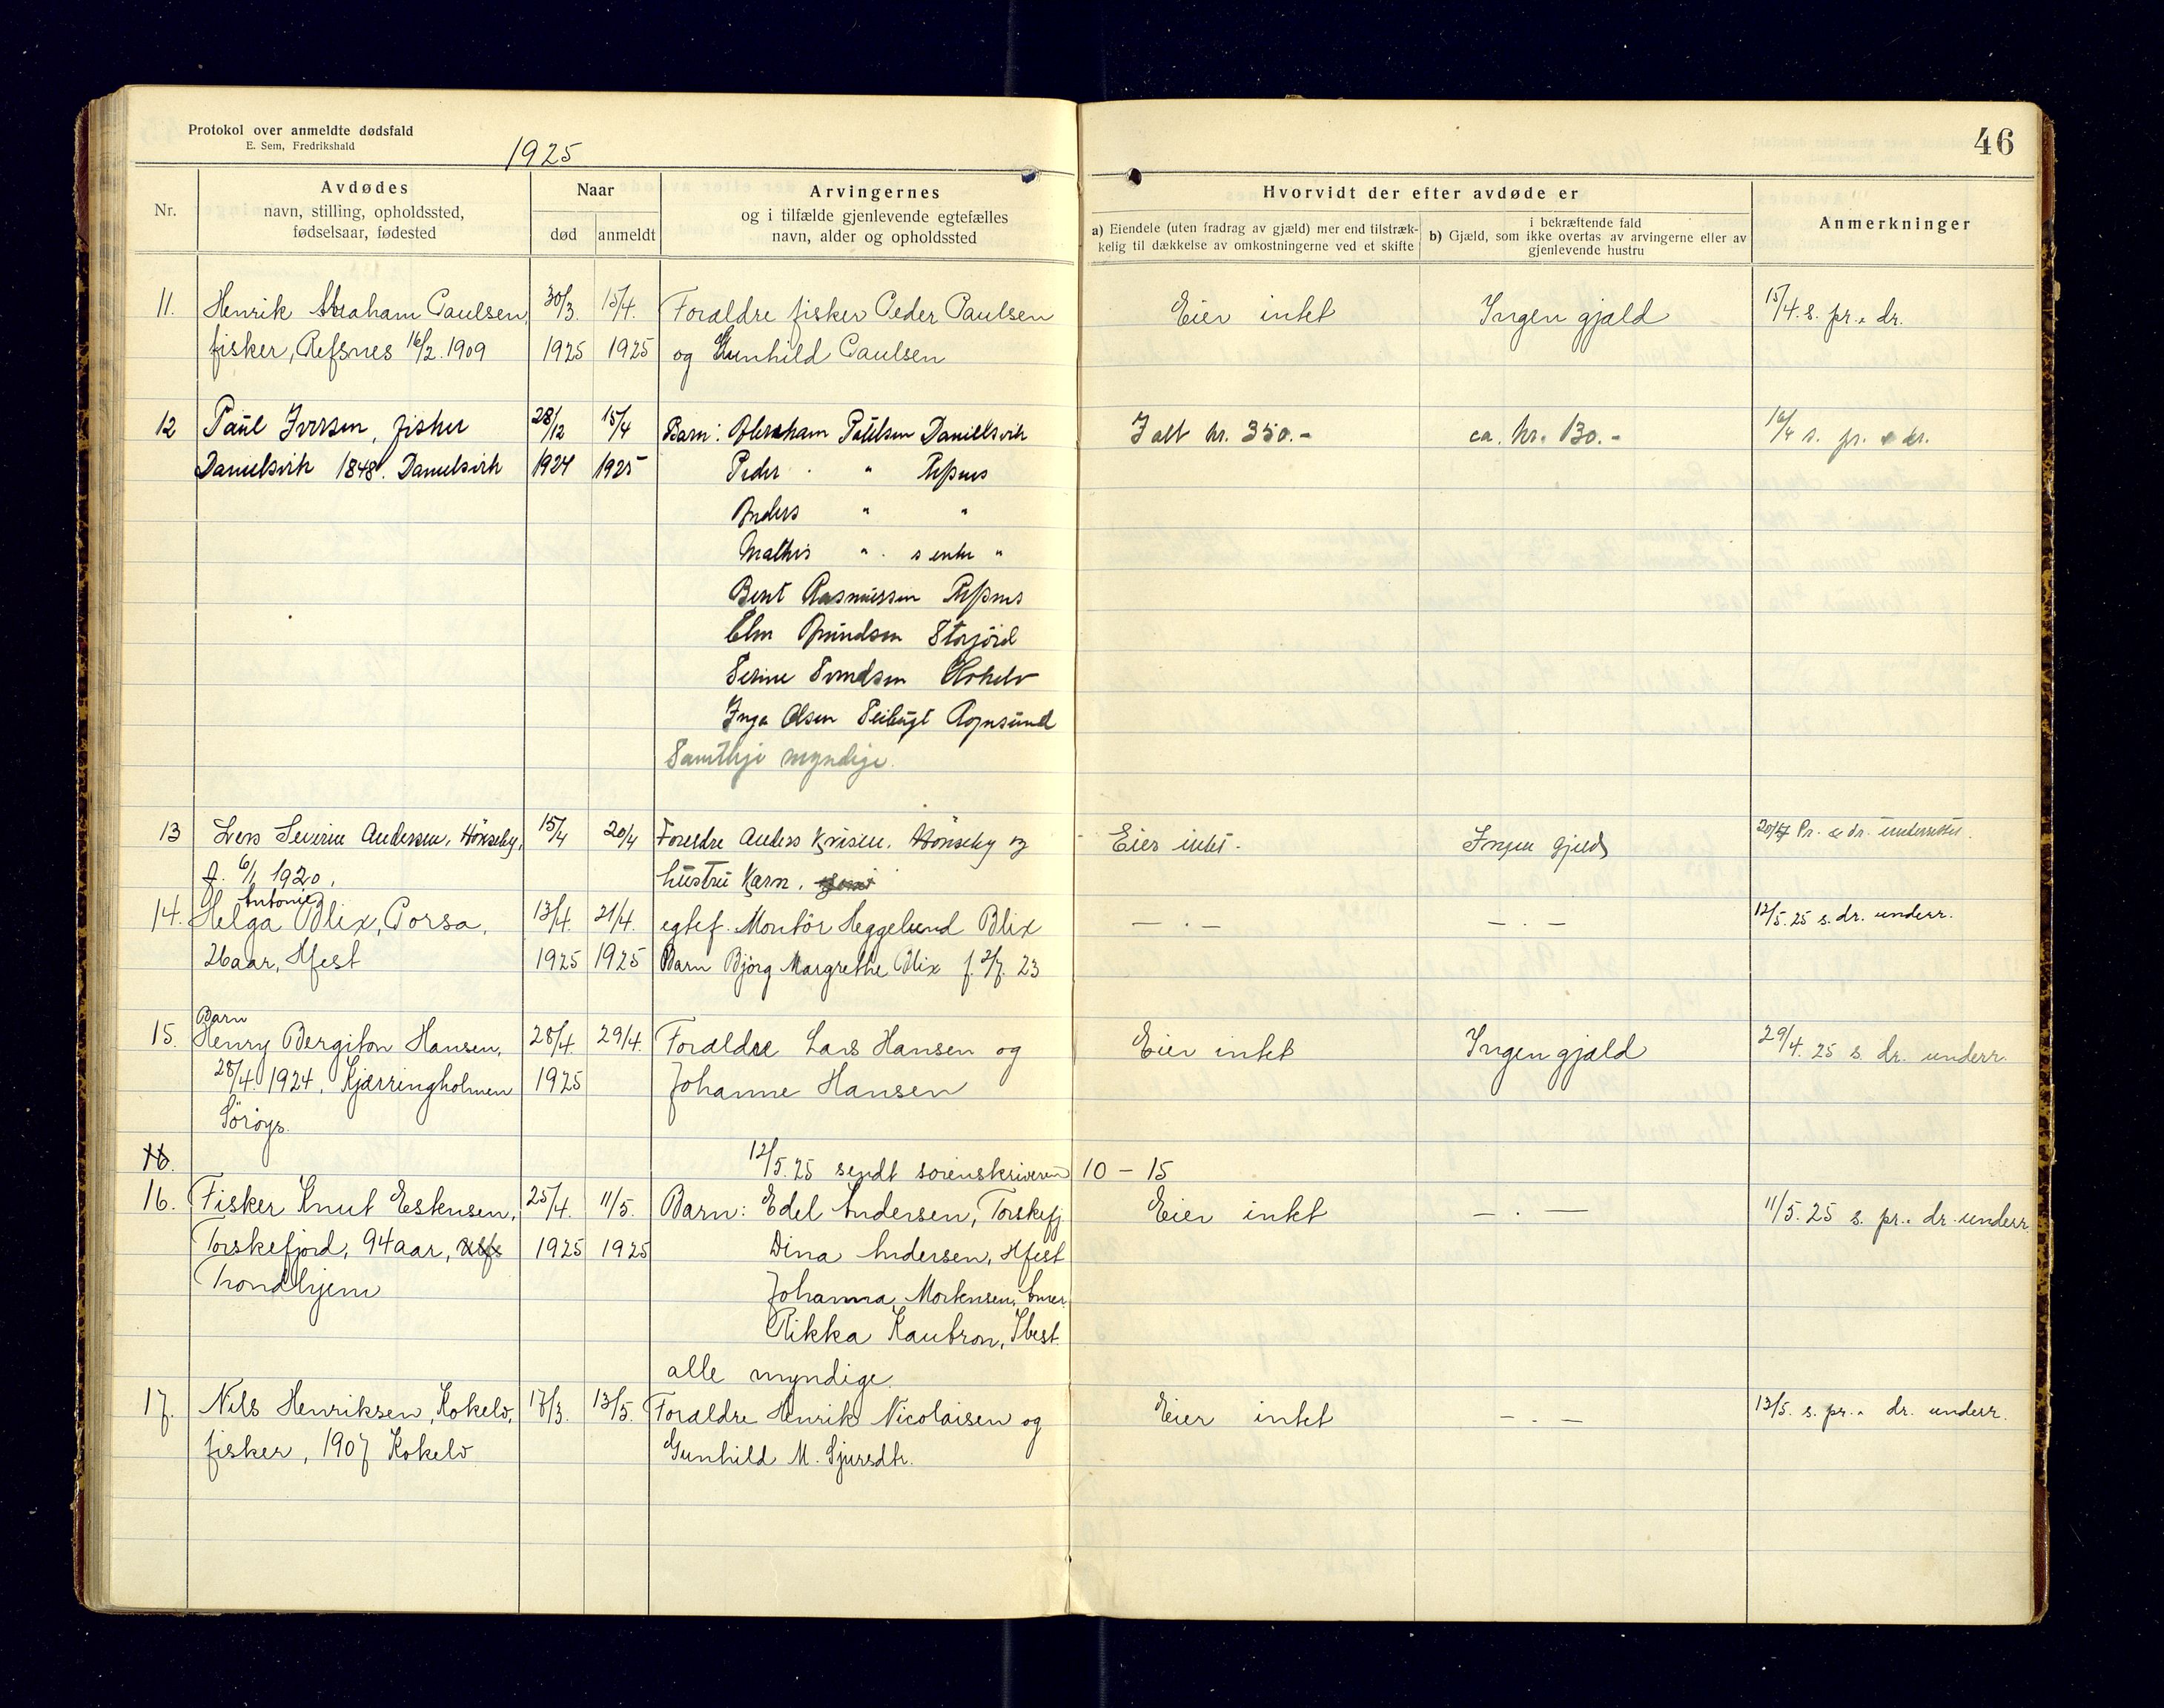 Protokol over anmeldte dødsfald
E. Sem, Fredrikshald
1925
46
Nr.
Avdødes
navn, stilling, opholdssted,
fødselsaar, fødested
Naar
død
anmeldt
Arvingernes
og i tilfælde gjenlevende egtefælles
navn, alder og opholdssted
Hvorvidt der efter avdøde er
a) Eiendele (uten fradrag av gjæld) mer end tilstræk-
kelig til dækkelse av omkostningerne ved et skifte
i bekræftende fald
b) Gjæld, som ikke overtas av arvingerne eller av
gjenlevende hustru
Anmerkninger
11. Henrik Abraham Paulsen, 30/3. 15/4. Forældre fisker Peder Paulsen Eier intet Ingen gjæld 15/4. s. pr. dr.
fisker, Refsnes 16/2. 1909 1925 1925 og Gunhild Paulsen
12 Paul Iversen, fisker 28/12 15/4 Barn: Abraham Paulsen Danielsvik I alt kr. 350.- ca. kr. 130.- 16/4 s. pr. & dr.
Danielsvik 1848. Danielsvik 1924 1925 Peder " Refsnes
Anders " "
Mathis " "
Berit Rasmussen Refsnes
Elen Amundsen Storjord
Serine Svendsen Kokelv
Inga Olsen Seibugt Rognsund
Samtlige myndige.
13 Lars Severin Andersen, Hönseby, 15/4 20/4 Foreldre Anders Krisen. Hönseby og Eier intet. Ingen gjeld 20/4 Pr. & dr. underrettet.
f. 6/1 1920, hustru Karn.
Antonie
14. Helga Blix, Porsa, 13/4. 21/4. egtef. Montör Heggelund Blix — . — — . — 12/5. 25 s. dr. underr.
26 aar, Hfest 1925 1925 Barn Bjorg Margrethe Blix f. 2/7. 23
Barn
15. Henry Bergiton Hansen, 28/4. 29/4. Forældre Lars Hansen og Eier intet Ingen gjæld 29/4. 25 s. dr. underr.
28/4. 1924, Kjærringholmen 1925 Johanne Hansen
Söröys.
16.
12/5. 25 sendt sorenskriveren 10 – 15
16. Fisker Knut Eskensen, 25/4. 11/5. Barn: Edel Andersen, Torskefj. Eier intet — . — 11/5. 25 s. pr. dr. underr.
Torskefjord, 94 aar, 1925 1925 Dina Andersen, Hfest
Trondhjem Johanna Mortensen, Amer.
Rikka Kaubron, Ibest.
alle myndige.
17. Nils Henriksen, Kokelv, 17/3. 13/5. Forældre Henrik Nicolaisen og Eier intet — . — 13/5. s. pr. dr. underr.
fisker, 1907 Kokelv Gunhild M. Sjursdtr.